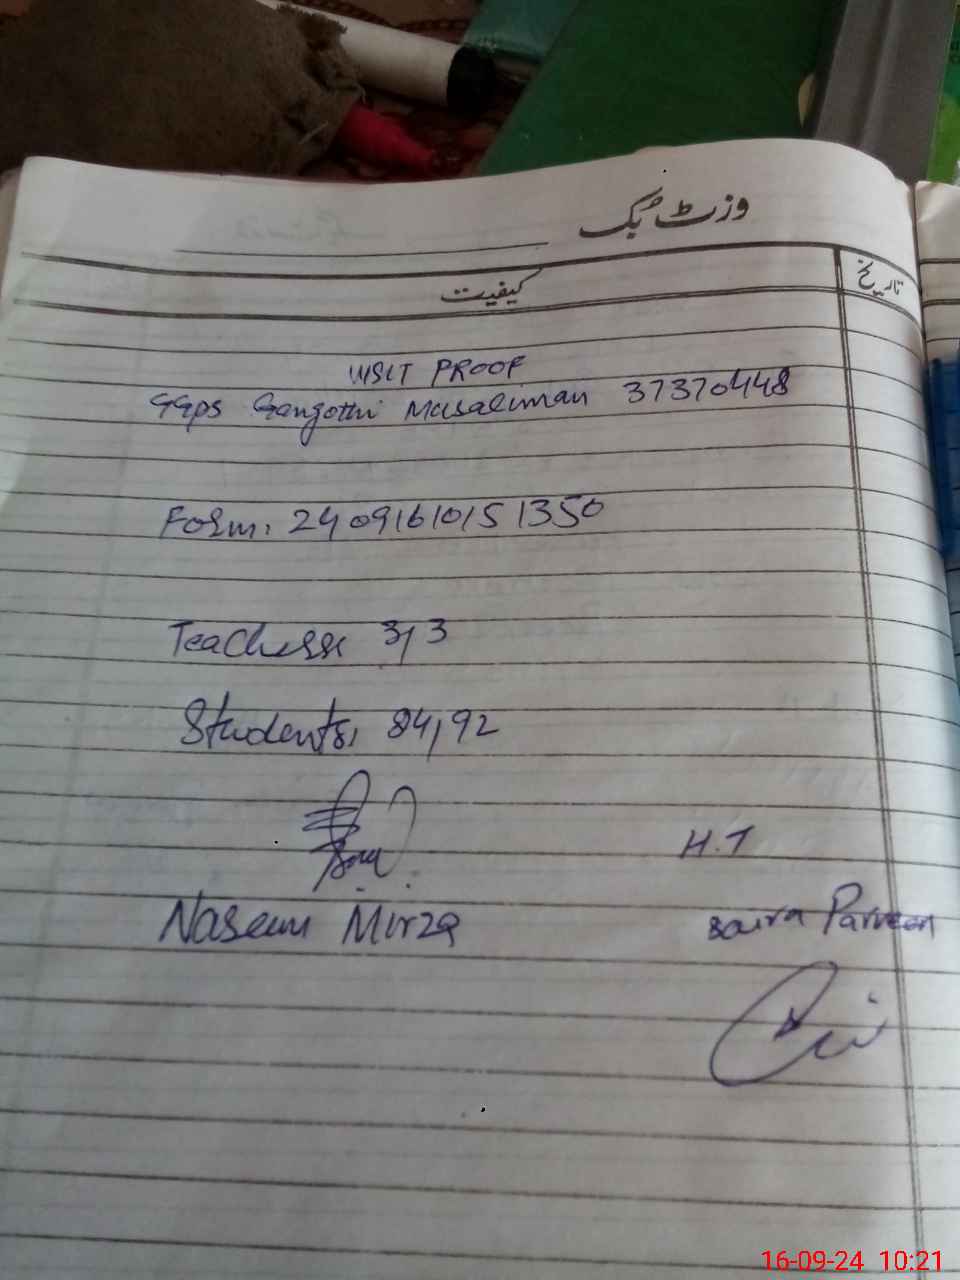 وزٹ بک
کیفیت
تاریخ
VISIT PROOF
GGPS Gangothi Musaliman 37370448
Form: 24091610151350
Teachers: 3/3
Students: 84/92
H.T
Naseem Mirza
Saira Parveen
16-09-24 10:21